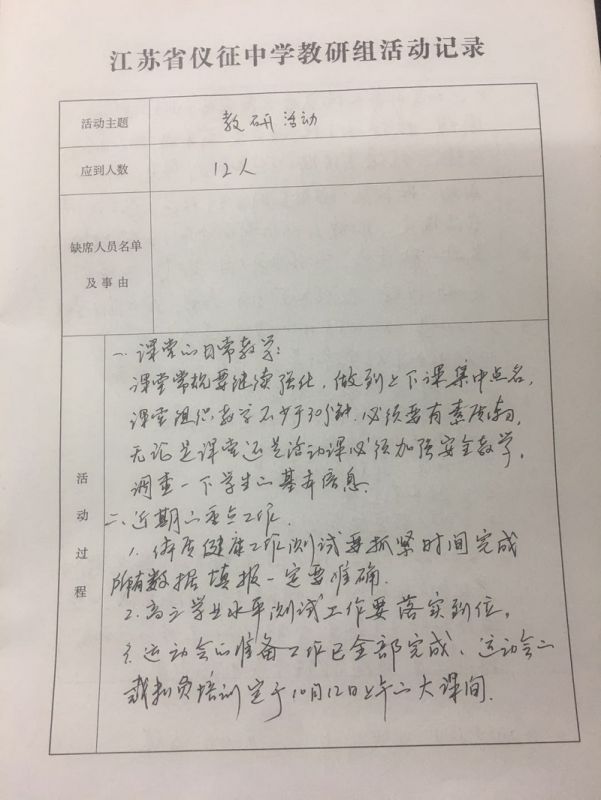 江苏省仪征中学教研组活动记录
活动主题
教研活动
应到人数
12人
缺席人员名单
及事由
活动过程
一.课堂的日常教学:
课堂常规要继续强化,做到上下课集中点名,
课堂组织教学不少于30分钟.必须要有素质
无论是课堂还是活动课必须加强安全教学,
调查一下学生的基本信息.
二、近期的重点工作.
1.体质健康工作测试要抓紧时间完成
所有数据填报一定要准确.
2.高三学业水平测试工作要落实到位。
3.运动会的准备工作已全部完成、运动会的
裁判员培训定于10月12日上午的大课间.